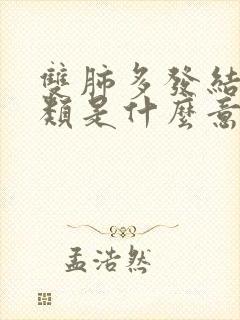 雙肺多發結
類是什麼意
孟浩然